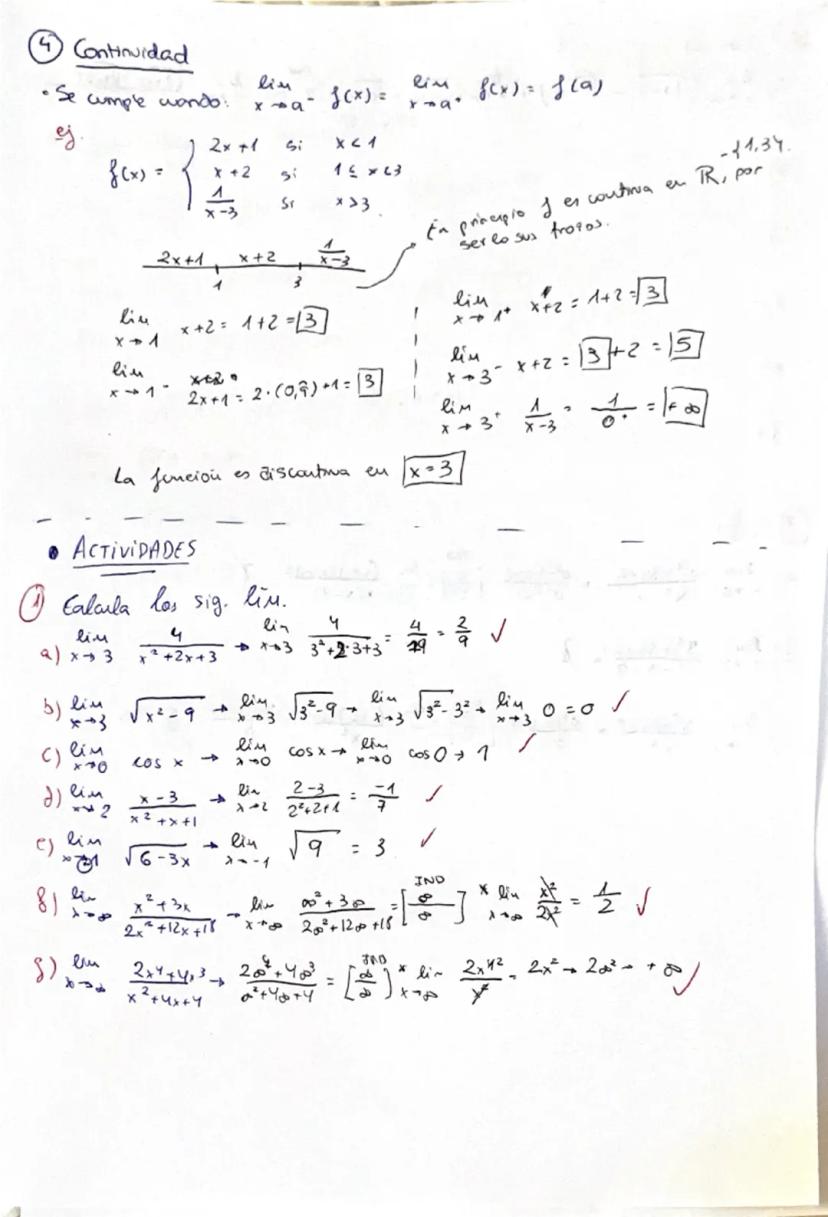 ④ Continuidad
• Se cumple cuando: lim x→a⁻ f(x) = lim x→a⁺ f(x) = f(a)
ej.
f(x) = { 2x+1 si x<1
x+2 si 1≤x<3
1/(x-3) si x>3
-{1,3}.
En principio f es continua en ℝ, por
serlo sus trozos.
2x+1 x+2 1/(x-3)
1 3
lim x→1 x+2 = 1+2 = 3
lim x→1⁺ x+2 = 1+2 = 3
lim x→1⁻ 2x+1 = 2·(0,9̂)+1 = 3
lim x→3⁻ x+2 = 3+2 = 5
lim x→3⁺ 1/(x-3) = 1/0⁺ = +∞
La función es discontinua en x=3
• ACTIVIDADES
① Calcula los sig. lím.
a) lim x→3 4/(x²+2x+3) → lim x→3 4/(3²+2·3+3) = 4/18 = 2/9 ✓
b) lim x→3 √(x²-9) → lim x→3 √(3²-9) → lim x→3 √(3²-3²) → lim x→3 0 = 0 ✓
c) lim x→0 cos x → lim x→0 cos x → lim x→0 cos 0 → 1 ✓
d) lim x→2 (x-3)/(x²+x+1) → lim x→2 (2-3)/(2²+2+1) = -1/7 ✓
e) lim x→-1 √(6-3x) → lim x→-1 √9 = 3 ✓
f) lim x→∞ (x²+3x)/(2x²+12x+18) → lim x→∞ (∞²+3∞)/(2∞²+12∞+18) = [∞/∞] IND * lim x→∞ x²/2x² = 1/2 ✓
g) lim x→∞ (2x⁴+4x³)/(x²+4x+4) → (2∞⁴+4∞³)/(∞²+4∞+4) = [∞/∞] IND * lim x→∞ 2x⁴²/x² = 2x² → 2∞² → +∞ ✓